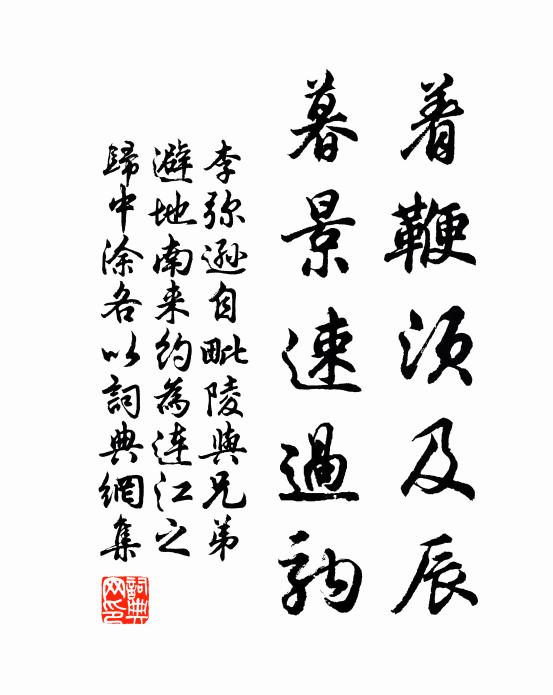 着鞭须及辰
暮景速過駒
李弥遜自毗陵與兄弟
避地南来約為连江之
歸中涂各以詞典網集
詞典网印